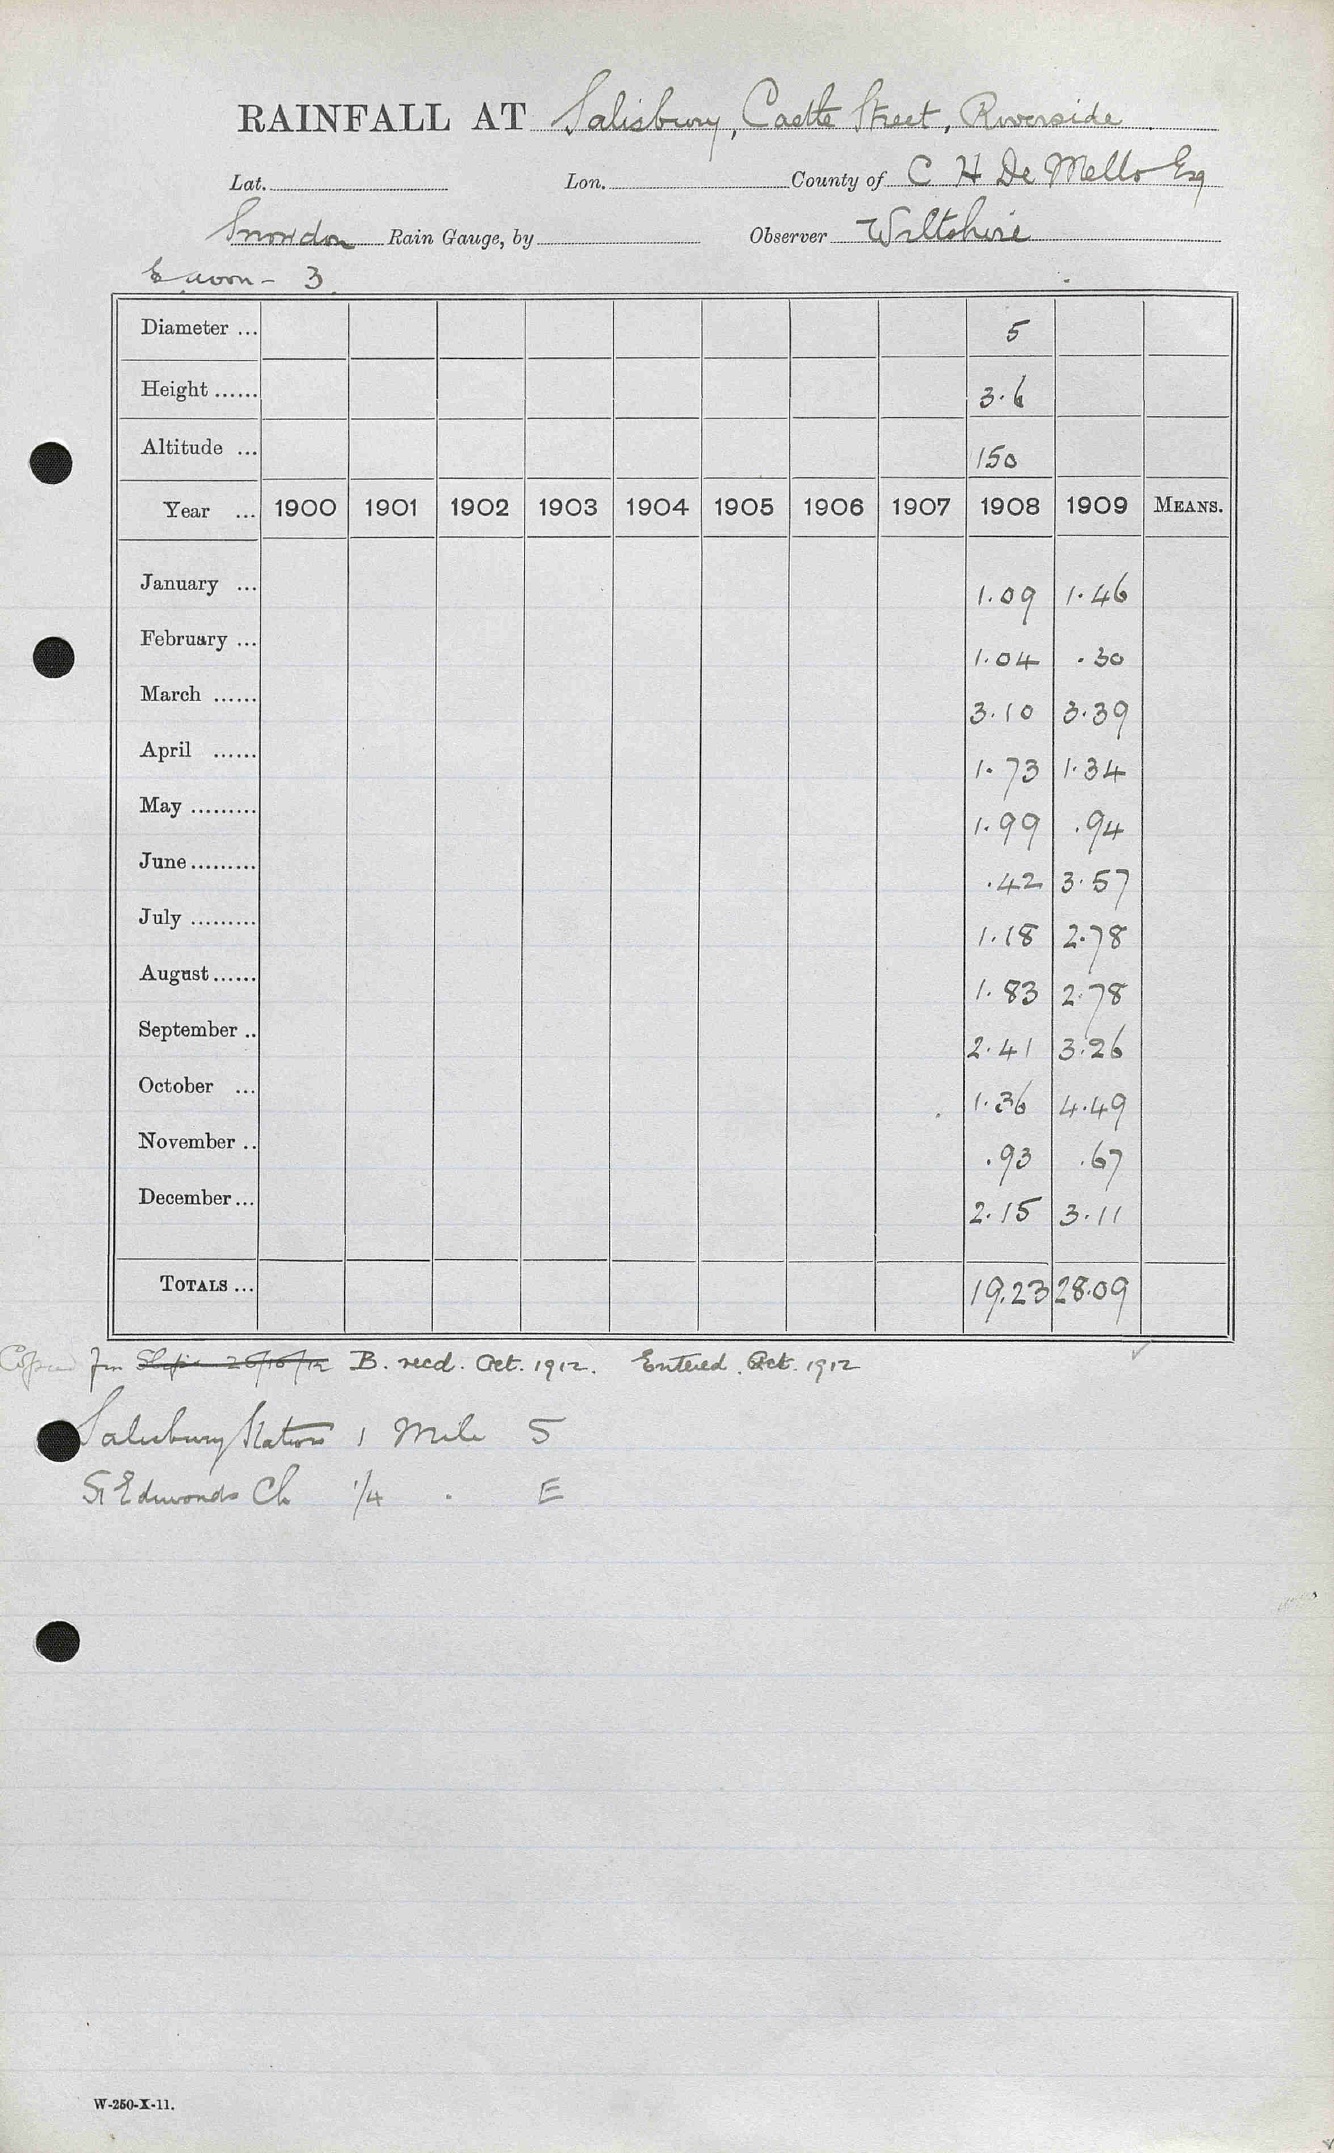 RAINFALL AT Salisbury, Castle Street, Riverside
Lat. Lon. County of C H De Mello Esq
Snowdon Rain Gauge, by Observer Wiltshire
E avon - 3
Diameter ... 5
Height ...... 3.6
Altitude ... 150
Year ... 1900 1901 1902 1903 1904 1905 1906 1907 1908 1909 MEANS.
January ... 1.09 1.46
February ... 1.04 .30
March ...... 3.10 3.39
April ...... 1.73 1.34
May ......... 1.99 .94
June ......... .42 3.57
July ......... 1.18 2.78
August ...... 1.83 2.78
September .. 2.41 3.26
October ... 1.36 4.49
November .. .93 .67
December ... 2.15 3.11
TOTALS ... 19.23 28.09
Copied from B. recd. Oct. 1912. Entered Oct. 1912
Salisbury Station 1 Mile S
St Edmonds Ch 1/4 . E
W-250-X-11.